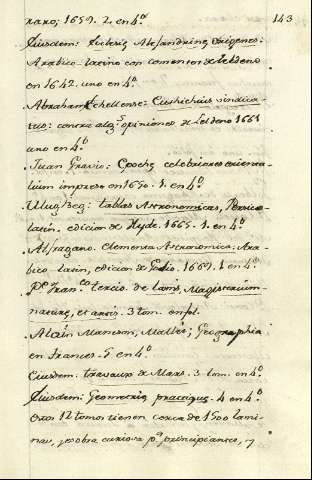 raro; 1659. 2. en 4º
143
Ejusdem: Eclesiæ Alejandrinæ origenes:
Arabico-latino con comentos de Seldeno
en 1642. uno en 4º
Abraham Echellense: Eutichius vindica-
tus: contra algs opiniones de Seldeno 1661
uno en 4º
Juan Gravio: Epochæ celebriores orienta-
lium impreso en 1650. 1. en 4º
Ulug Beg: tablas Astronomicas, Persico
latin. edicion de Hyde. 1665. 1. en 4º
Alfragano. Elementa Astronomica: Ara-
bico-latin, edicion de Golio. 1669. 1 en 4º
Pe Franco tercio de Lanis, Magisterium
naturæ, et artis. 3 tom. en fol.
Alain Maneson, Mallet; Geographia
en frances. 5 en 4º
Ejusdem: travaux de Mars. 3. tom. en 4º
Ejusdem: Geometrie prattique. 4 en 4º
Estos 12 tomos tienen cerca de 1500 lami-
nas, y es obra curiosa pa principiantes, y